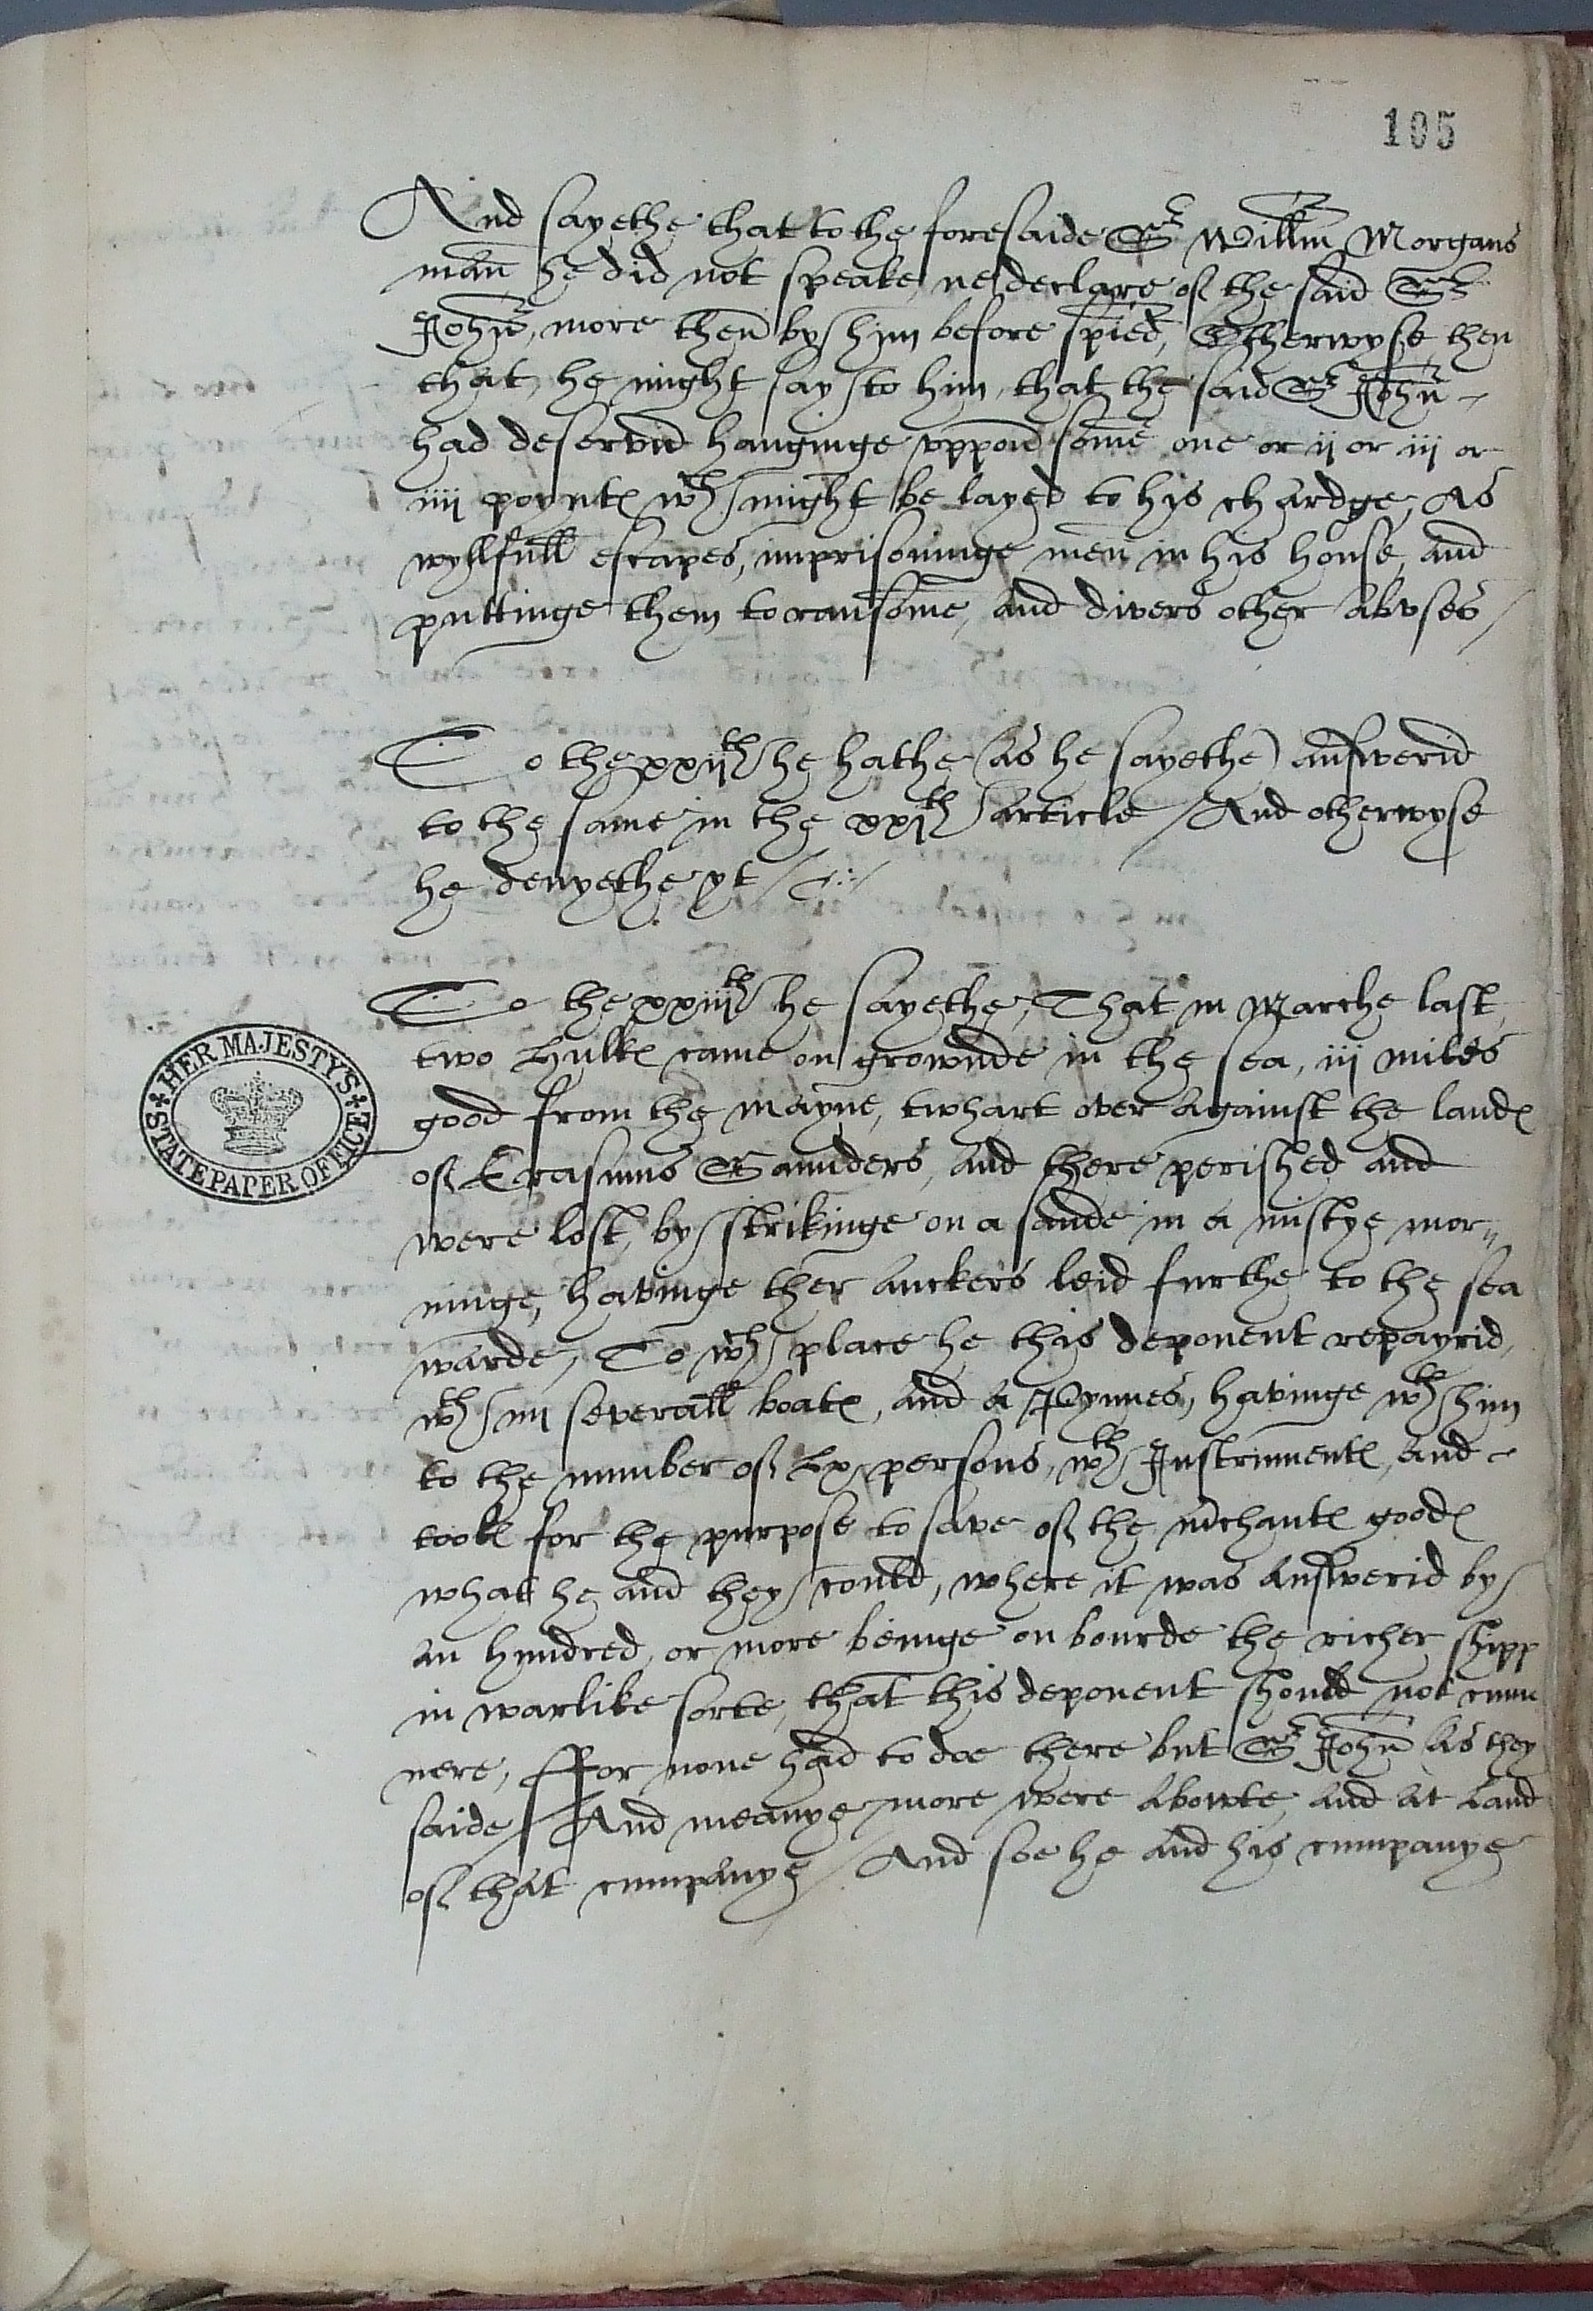 105
And sayethe that to the foresaide Sr Willm Morgans
man he did not speake, ne declare of the said Sr
John, more then by him before spied, Otherwyse then
that he might say to him, that the said Sr John
had deservid hanginge uppon some one or ij or iij or
iiij poyntes wch might be layed to his chardge, As
wyllfull escapes, imprisoninge men in his house, and
puttinge them to ransome, and divers other abuses /
To the xxijth he hathe (as he sayethe) answerid
to the same in the xxjth article / And otherwyse
he denyethe yt /
To the xxiijth he sayethe, That in Marche last,
two Hulkes came on grownde in the sea, iij miles
good from the mayne, twhart over against the landes
of Erasmus Saunders, and there perished and
were lost, by strikinge on a sande in a mistye mor=
ninge, havinge ther anckers leid furthe to the sea
warde, To wch place he this deponent repayrid,
wth iiij severall boates, and a Pynnes, havinge wth him
to the number of Lx persons, wth Instrumentes, and
tooles for the purpose to save of the mchantes goodes
what he and they could, where it was answerid by
an hundred, or more beinge on bourde the richer shipp
in warlike sorte, that this deponent should not cum
nere, ffor none had to doe there but Sr John as they
saide / And meanye more were abowte and at land
of that cumpanye / And soe he and his cumpanye
HER MAJESTY'S STATE PAPER OFFICE